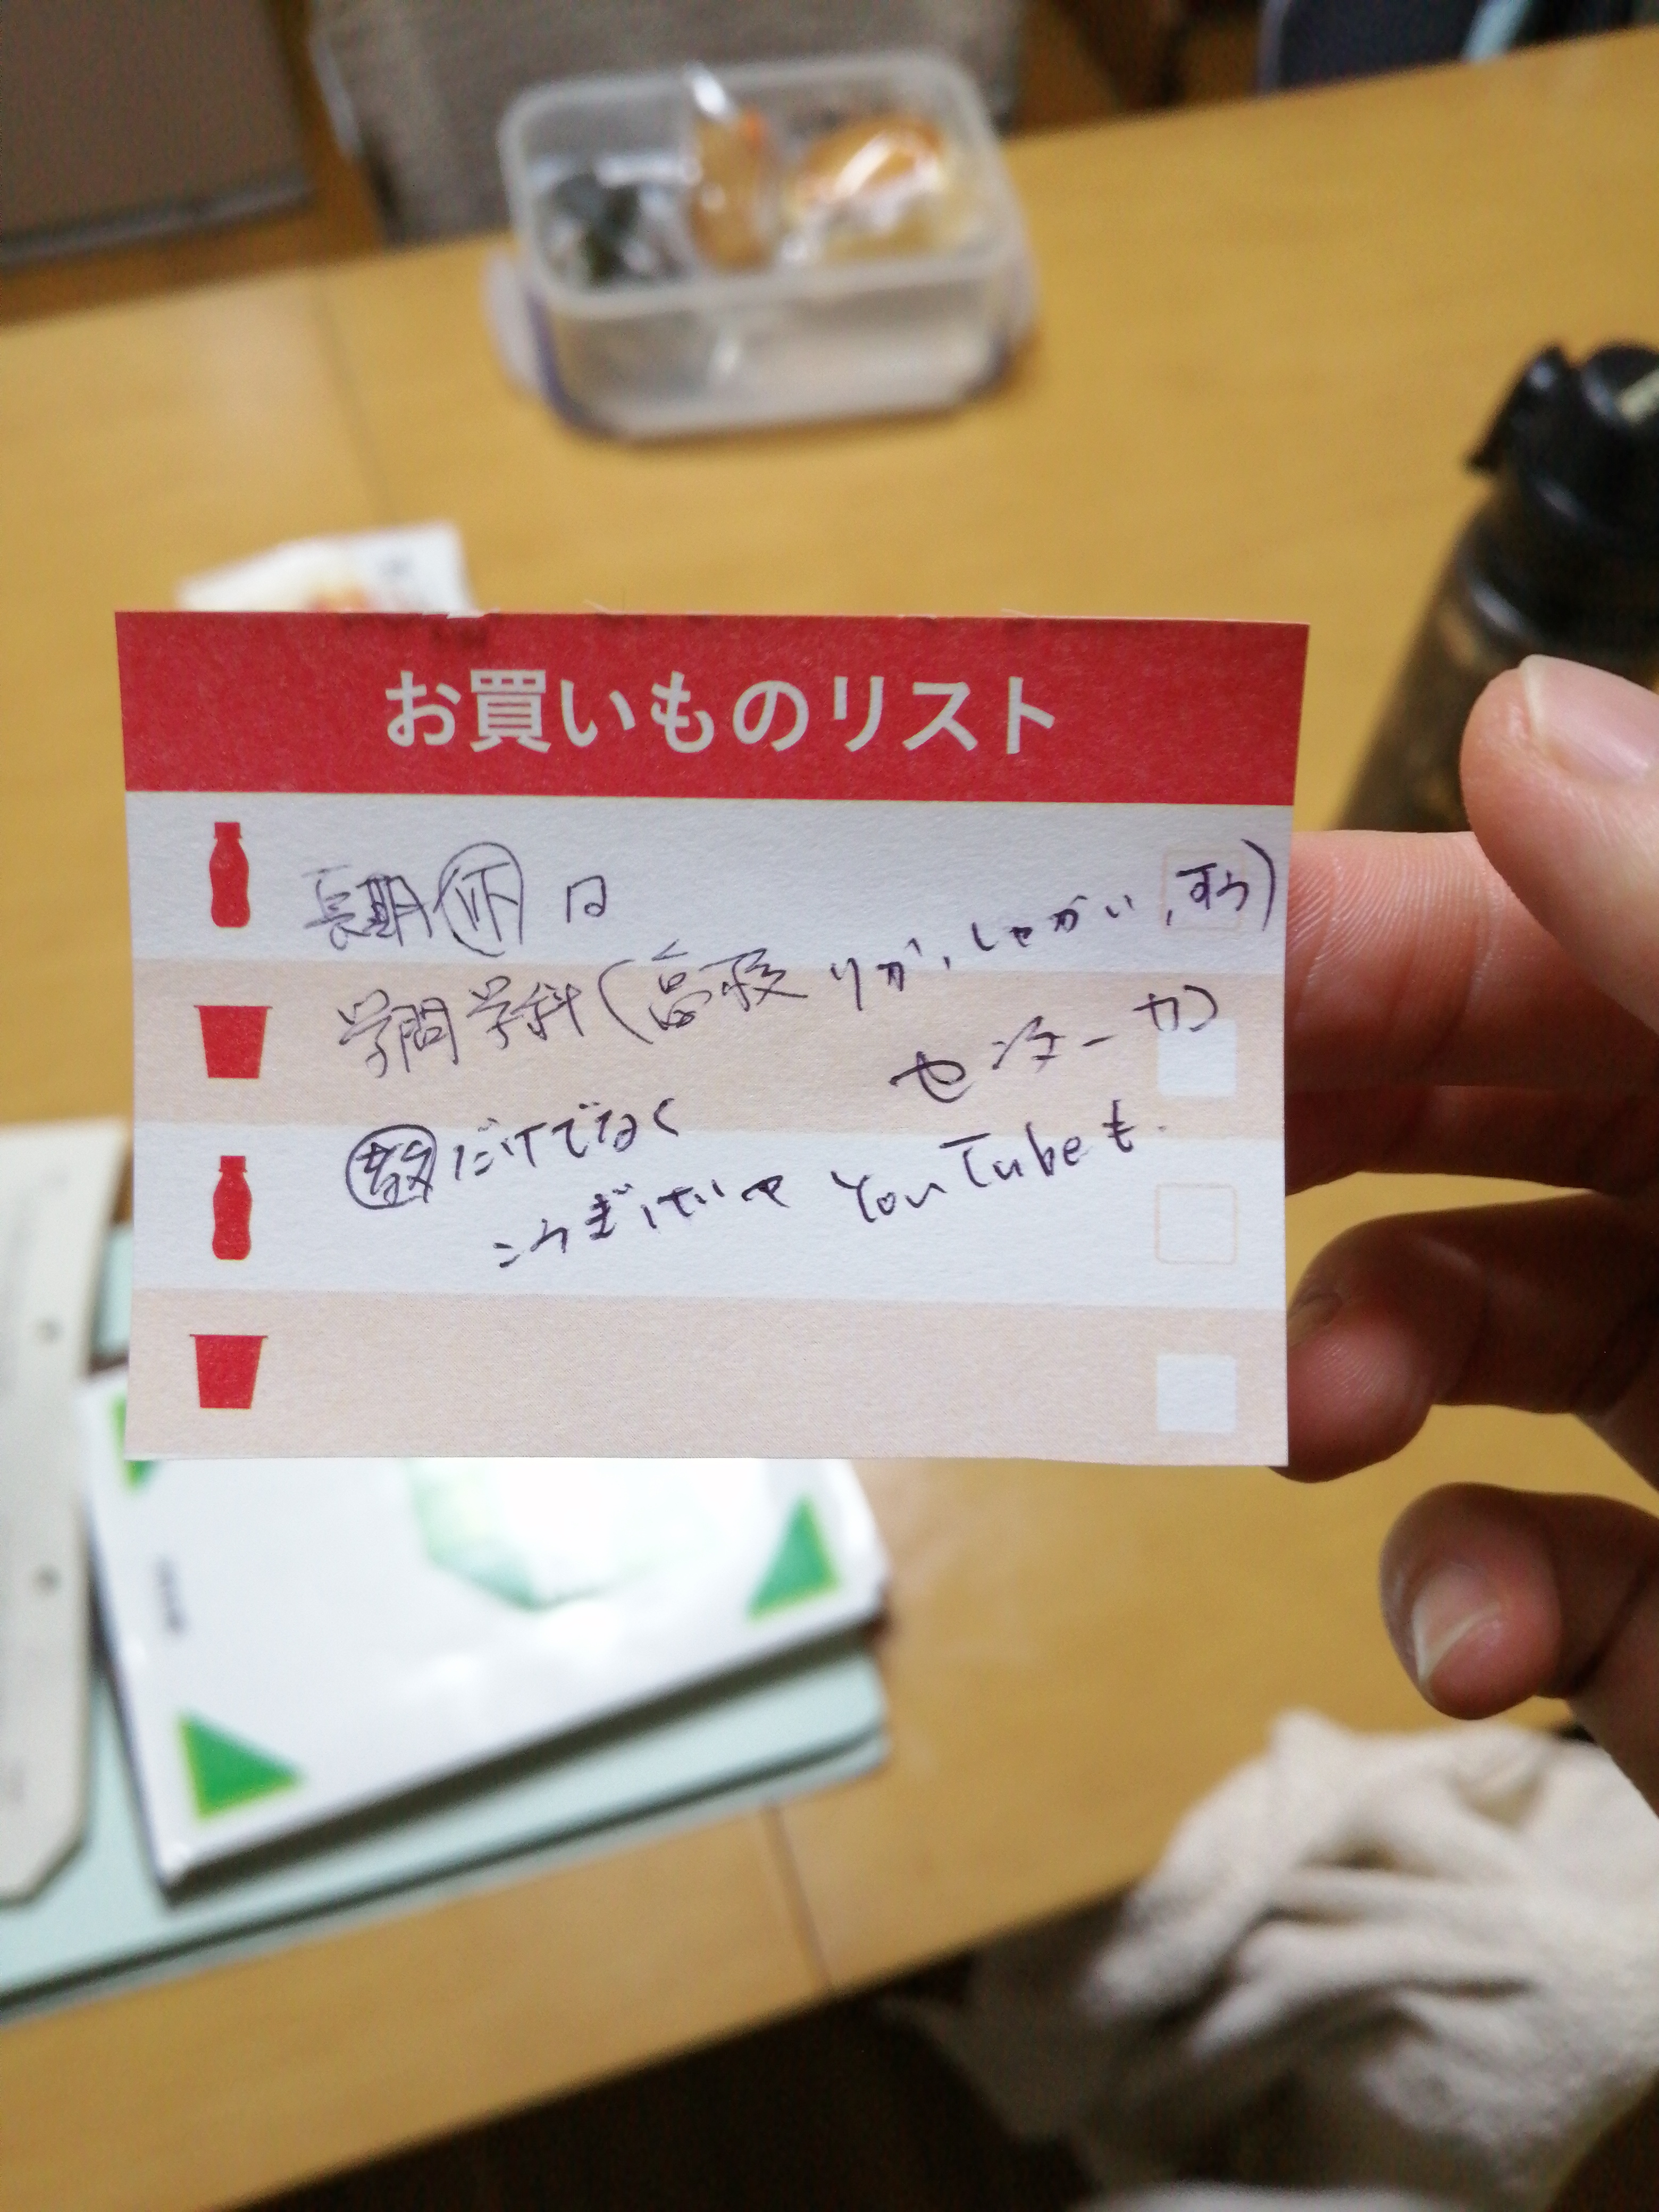 お買いものリスト
長期休日
学問学科(高校りか、しゃかい、すう)
センターカ
教だけでなく
こうぎ YouTubeも